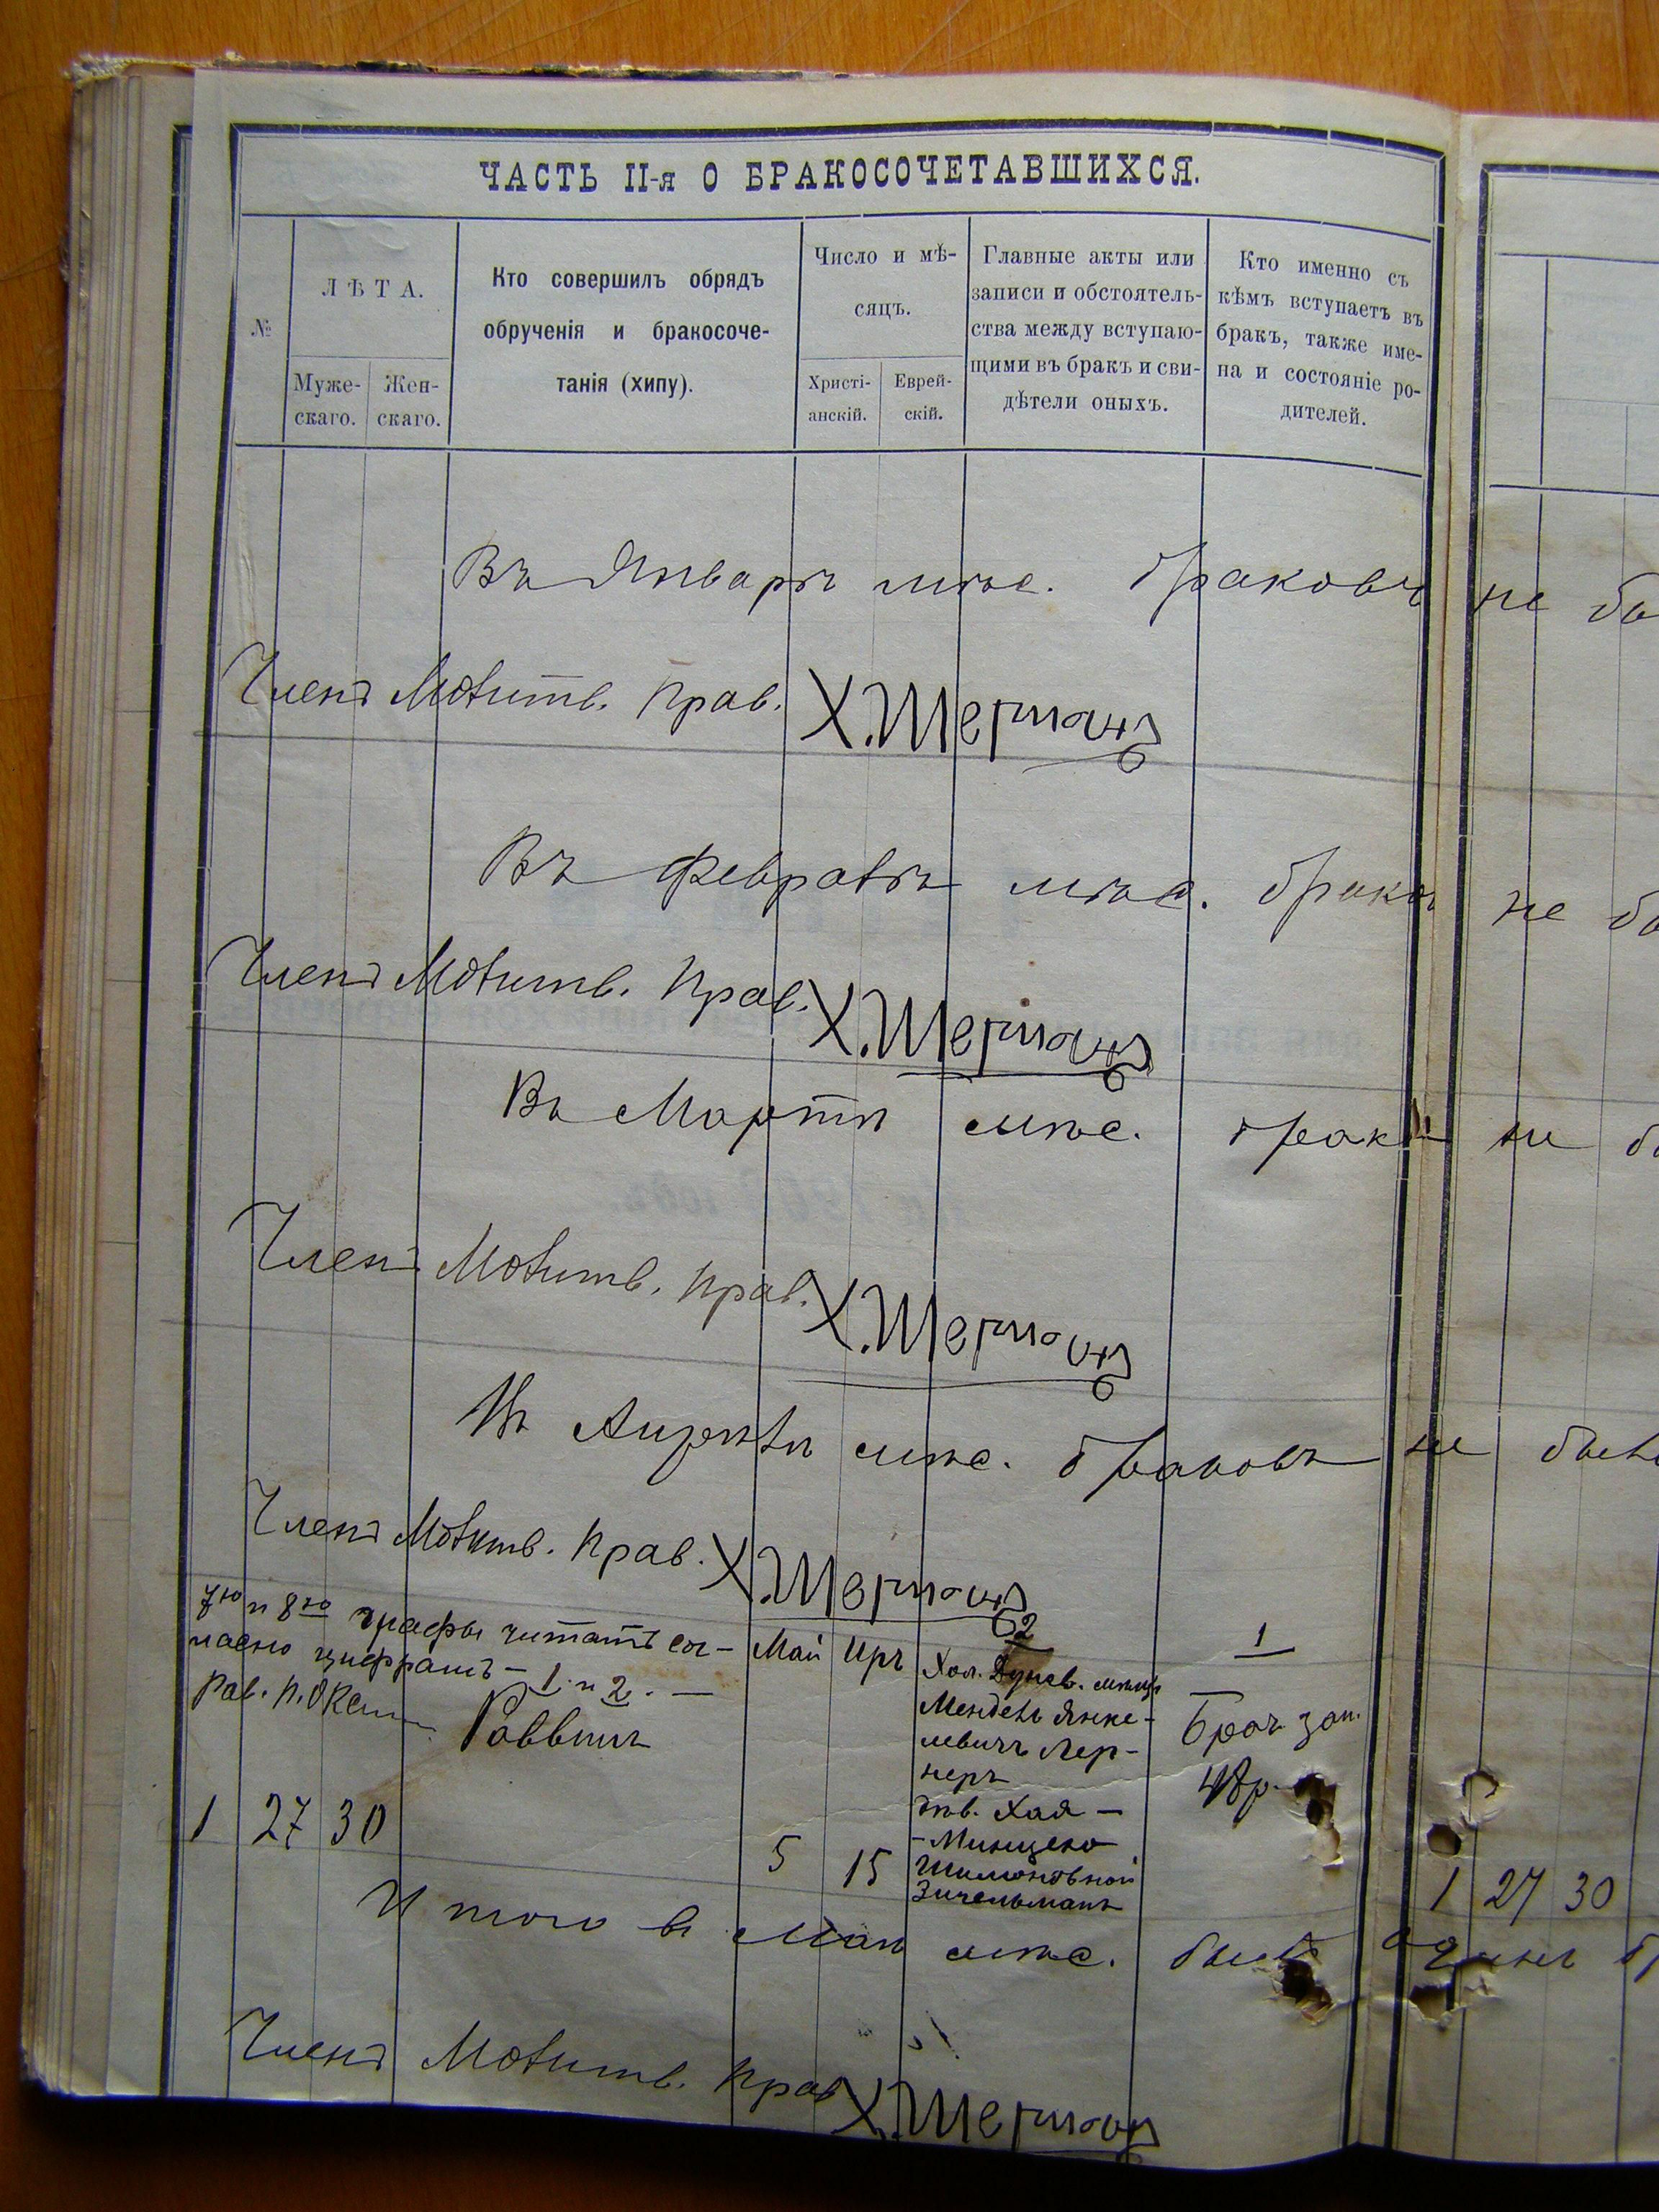 ЧАСТЬ II-я О БРАКОСОЧЕТАВШИХСЯ.
№
ЛѢТА.
Муже-
скаго.
Жен-
скаго.
Кто совершилъ обрядъ
обрученія и бракосоче-
танія (хипу).
Число и мѣ-
сяцъ.
Христі-
анскій.
Еврей-
скій.
Главные акты или
записи и обстоятель-
ства между вступаю-
щими въ бракъ и сви-
дѣтели оныхъ.
Кто именно съ
кѣмъ вступаетъ въ
бракъ, также име-
на и состояніе ро-
дителей.
Въ Январѣ мѣс. браковъ не бы
Членъ Молитв. Прав. Х.Шерманъ
Въ Февралѣ мѣс. брако не бы
Членъ Молитв. Прав. Х.Шерманъ
Въ Мартѣ мѣс. не бы
Членъ Молитв. Прав. Х.Шерманъ
Въ Апрѣлѣ мѣс. браковъ не было
Членъ Молитв. Прав. Х.Шерманъ
7ю и 8ю графы читать сог-
ласно цифрамъ - 1 и 2. -
Рав. П.
Раввинъ
1 27 30
Май
5
Иръ
15
2
Хол.
Мендель Янке-
левичъ Лер-
неръ
дѣв. Хая -
- Минцею
Шимоновной
1
Брач. зап.
48р.
1 27 30
Итого въ Маѣ мѣс. былъ одинъ б
Членъ Молитв. Прав. Х.Шерманъ